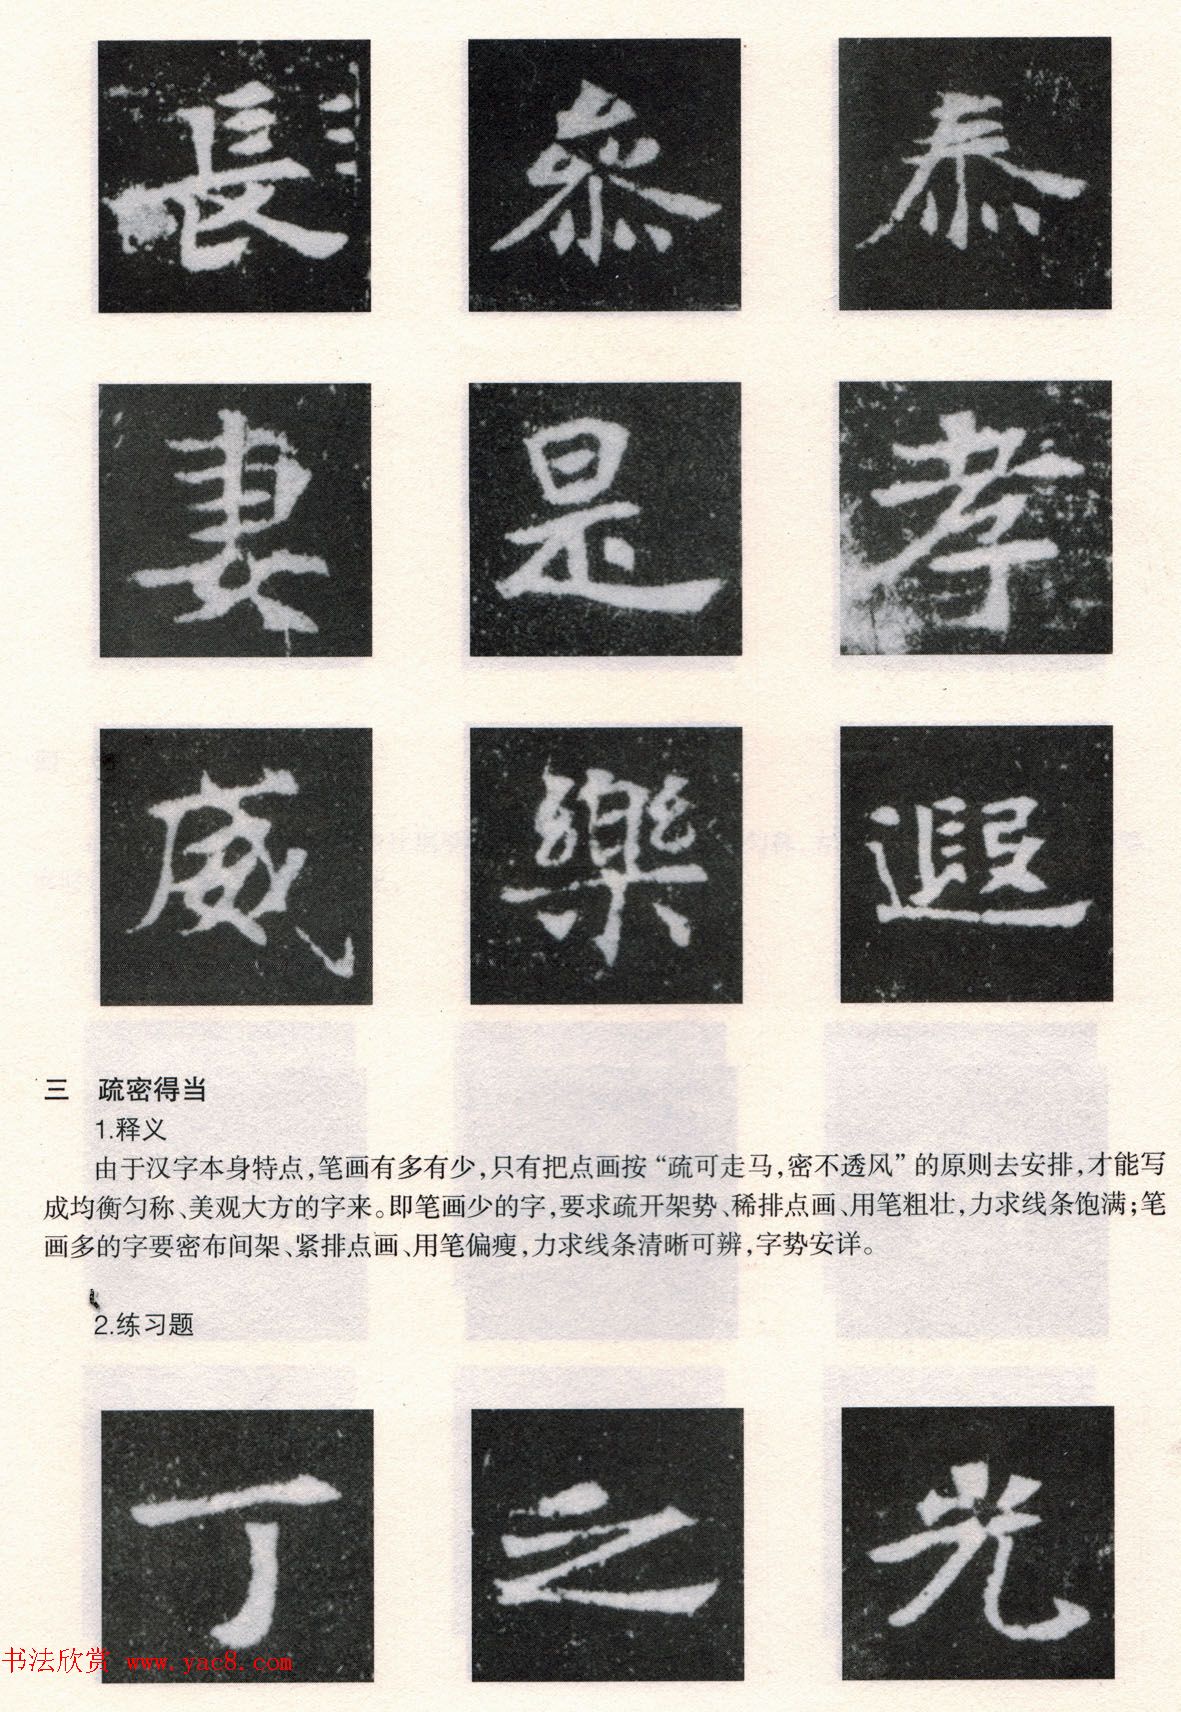 長 叅 泰
妻 是 孝
威 樂 遐
三 疏密得当
1.释义
由于汉字本身特点,笔画有多有少,只有把点画按“疏可走马,密不透风”的原则去安排,才能写
成均衡匀称、美观大方的字来。即笔画少的字,要求疏开架势、稀排点画、用笔粗壮,力求线条饱满;笔
画多的字要密布间架、紧排点画、用笔偏瘦,力求线条清晰可辨,字势安详。
2.练习题
丁 之 光
书法欣赏 www.yac8.com